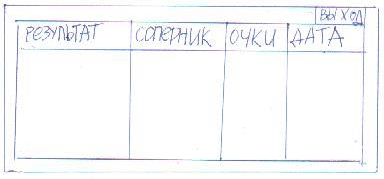 ВЫХОД
РЕЗУЛЬТАТ СОПЕРНИК ОЧКИ ДАТА